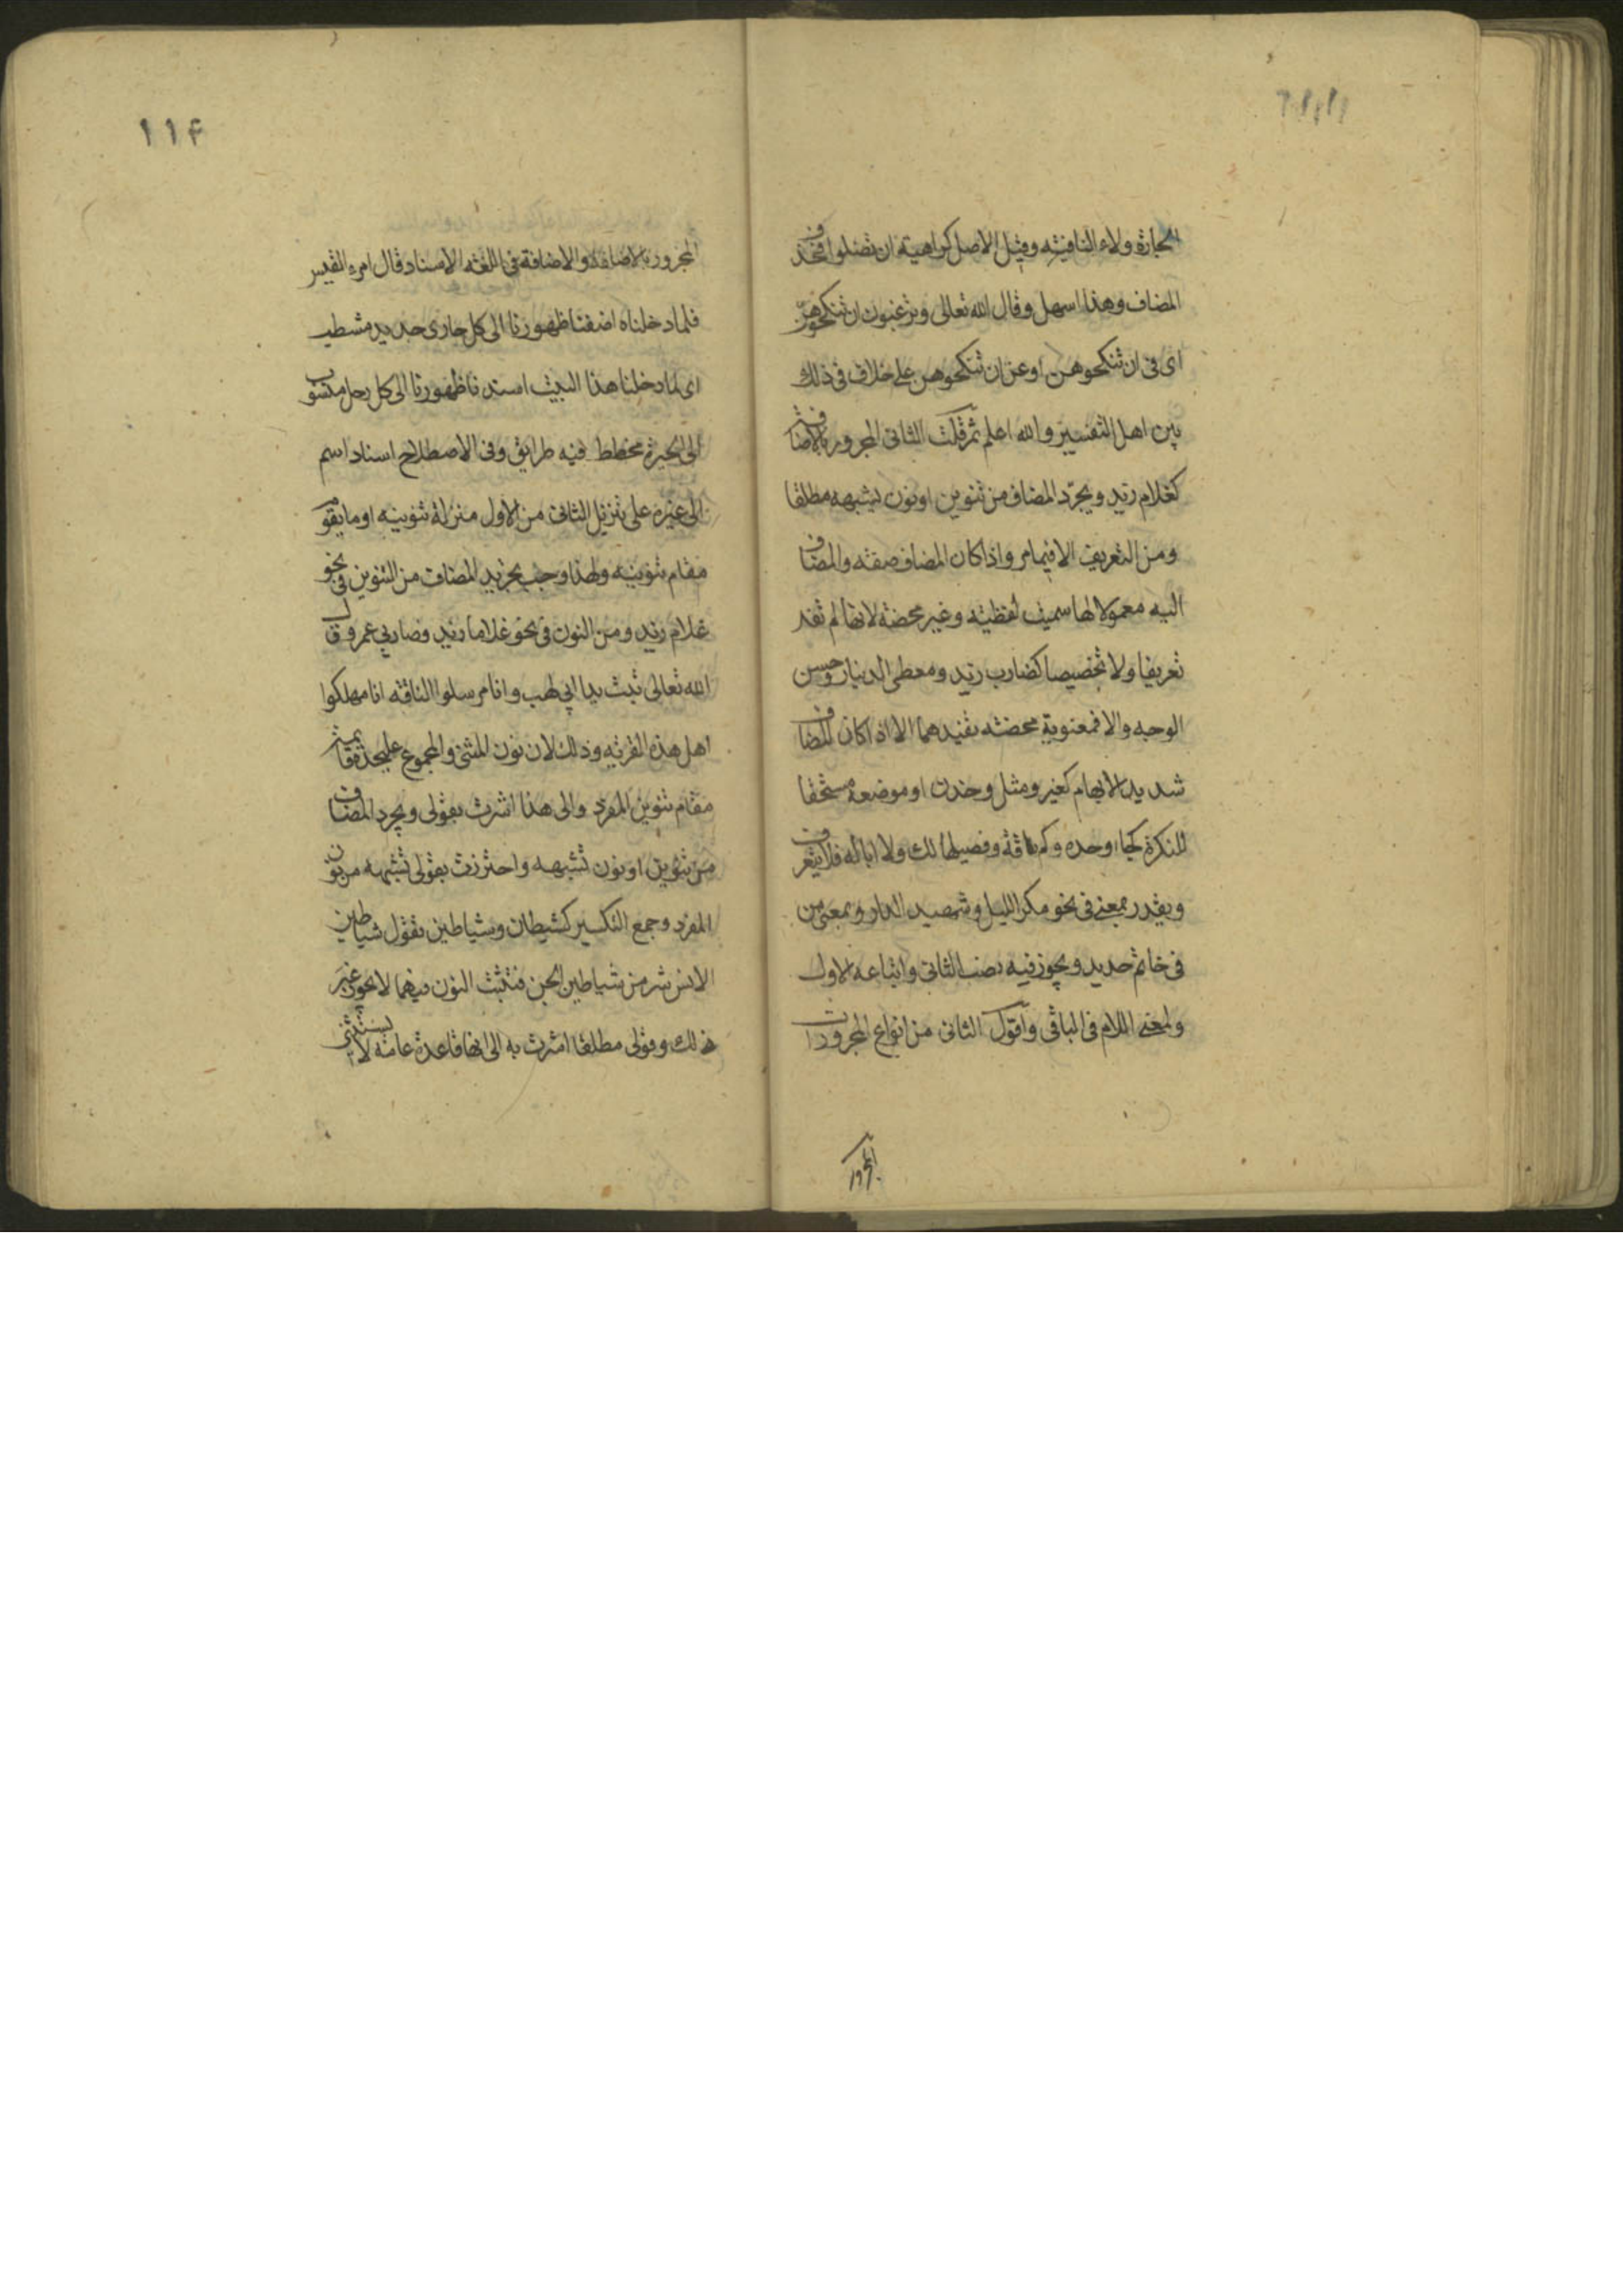 الجارة ولاء النافية وقيل الاصل كراهية ان تضلوا فحذف
المضاف وهذا اسهل وقال الله تعالى وترغبون ان تنكحوهن
اى فى ان تنكحوهن او عن ان تنكحوهن على خلاف فى ذلك
بين اهل التفسير والله اعلم ثم قلت الثانى المجرور بالاضافة
كغلام زيد ويجرد المضاف من تنوين او نون تشبهه مطلقا
ومن التعريف الا فيما مر واذا كان المضاف صفة والمضاف
اليه معمولا لها سميت لفظية وغير محضة لانها لم تفد
تعريفا ولا تخصيصا كضارب زيد ومعطى الدينار وحسن
الوجه والا فمعنوية محضة تفيدهما الا اذا كان المضاف
شديد الابهام كغير ومثل وخدن او موضعه مستحقا
للنكرة كجاء وحده وكم ناقة وفصيلها لك ولا ابا له فلا يتعرف
ويقدر بمعنى فى نحو مكر الليل وشهيد الدار وبمعنى من
فى خاتم حديد ويجوز فيه نصب الثانى واتباعه للاول
وبمعنى اللام فى الباقى واقول الثانى من انواع المجرورات
المجرور
١١۴
المجرور بالاضافة والاضافة فى اللغة الاسناد قال امرء القيس
فلما دخلناه اضفنا ظهورنا الى كل حارى جديد مشطب
اى لما دخلنا هذا البيت اسندنا ظهورنا الى كل رحل منسوب
الى الحيرة مخطط فيه طرايق وفى الاصطلاح اسناد اسم
الى غيره على تنزيل الثانى من الاول منزلة تنوينه او ما يقوم
مقام تنوينه ولهذا وجب تجريد المضاف من التنوين فى نحو
غلام زيد ومن النون فى نحو غلاما زيد وضاربى عمرو قال
الله تعالى تبت يدا ابى لهب وانا مرسلوا الناقة انا مهلكوا
اهل هذه القرية وذلك لان نون المثنى والمجموع على حده قائمة
مقام تنوين المفرد والى هذا اشرت بقولى ويجرد المضاف
من تنوين او نون تشبهه واحترزت بقولى تشبهه من نون
المفرد وجمع التكسير كشيطان وشياطين تقول شياطين
الانس شر من شياطين الجن فتثبت النون فيهما لا يجوز غير
ذلك وقولى مطلقا اشرت به الى انها قاعدة عامة لا يستثنى